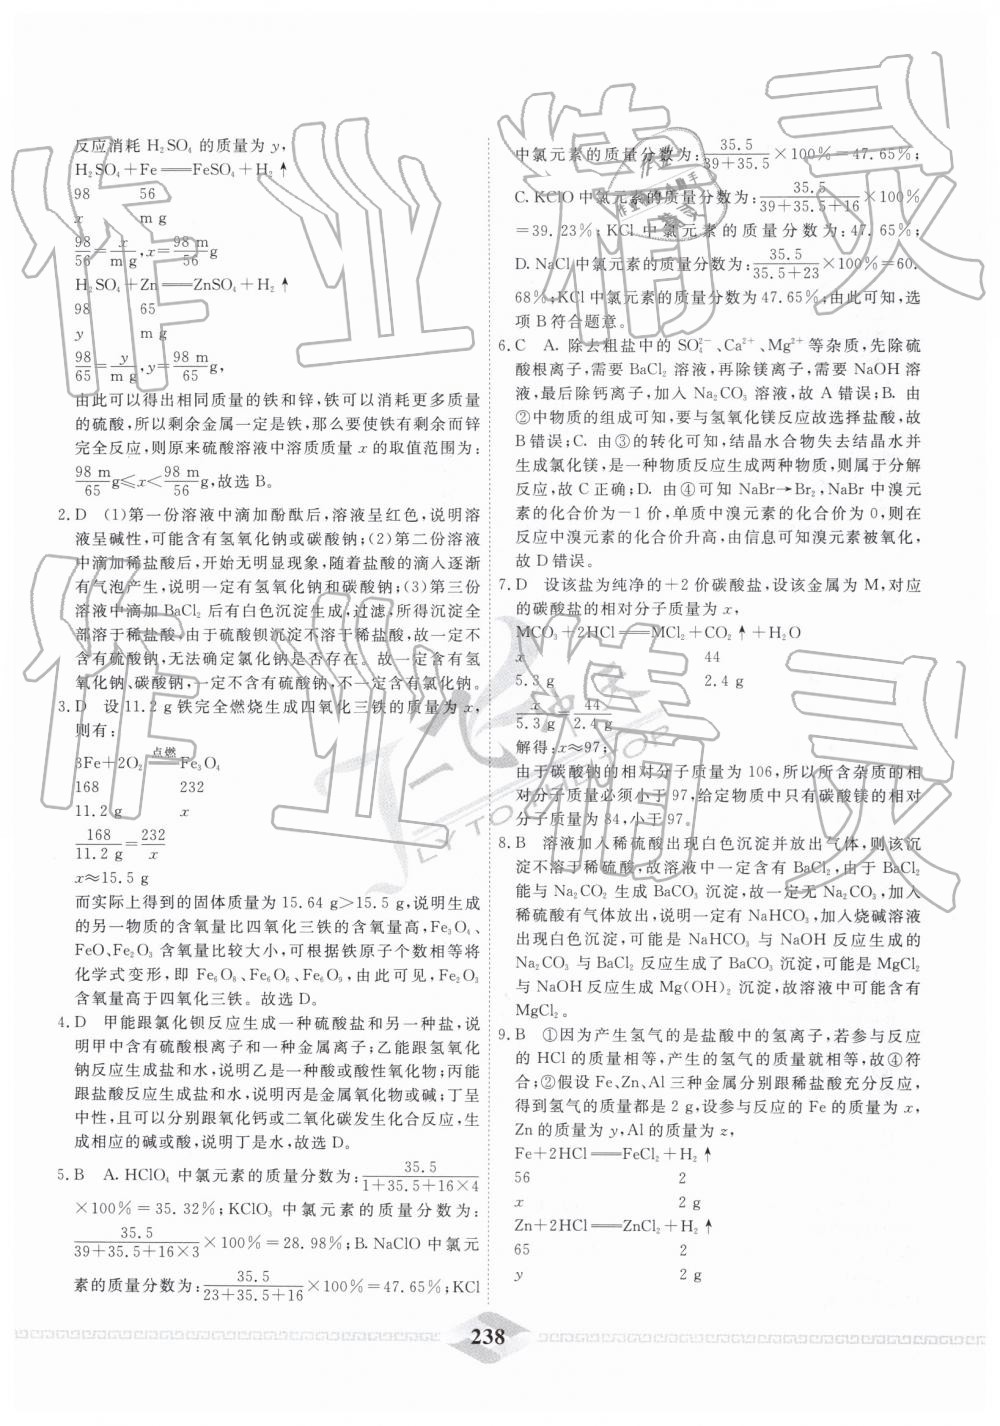 反应消耗 H₂SO₄ 的质量为 y,
H₂SO₄+Fe══FeSO₄+H₂↑
98 56
x m g
98/56=x/m g,x=98 m/56 g
H₂SO₄+Zn══ZnSO₄+H₂↑
98 65
y m g
98/65=y/m g,y=98 m/65 g,
由此可以得出相同质量的铁和锌,铁可以消耗更多质量
的硫酸,所以剩余金属一定是铁,那么要使铁有剩余而锌
完全反应,则原来硫酸溶液中溶质质量 x 的取值范围为:
98 m/65 g≤x<98 m/56 g,故选 B。
2. D (1)第一份溶液中滴加酚酞后,溶液呈红色,说明溶
液呈碱性,可能含有氢氧化钠或碳酸钠;(2)第二份溶液
中滴加稀硫酸后,开始无明显现象,随着盐酸的滴入逐渐
有气泡产生,说明一定有氢氧化钠和碳酸钠;(3)第三份
溶液中滴加 BaCl₂ 后有白色沉淀生成,过滤,所得沉淀全
部溶于稀盐酸,由于硫酸钡沉淀不溶于稀盐酸,故一定不
含有硫酸钠,无法确定氯化钠是否存在。故一定含有氢
氧化钠、碳酸钠,一定不含有硫酸钠,不一定含有氯化钠。
3. D 设 11.2 g 铁完全燃烧生成四氧化三铁的质量为 x,
则有:
3Fe+2O₂ 点燃══ Fe₃O₄
168 232
11.2 g x
168/11.2 g=232/x
x≈15.5 g
而实际上得到的固体质量为 15.64 g>15.5 g,说明生成
的另一物质的含氧量比四氧化三铁的含氧量高,Fe₃O₄、
FeO、Fe₂O₃ 含氧量比较大小,可根据铁原子个数相等将
化学式变形,即 Fe₆O₈、Fe₆O₆、Fe₆O₉,由此可见,Fe₂O₃
含氧量高于四氧化三铁。故选 D。
4. D 甲能跟氯化钡反应生成一种硫酸盐和另一种盐,说
明甲中含有硫酸根离子和一种金属离子;乙能跟氢氧化
钠反应生成盐和水,说明乙是一种酸或酸性氧化物;丙能
跟盐酸反应生成盐和水,说明丙是金属氧化物或碱;丁呈
中性,且可以分别跟氧化钙或二氧化碳发生化合反应,生
成相应的碱或酸,说明丁是水,故选 D。
5. B A. HClO₄ 中氯元素的质量分数为:35.5/(1+35.5+16×4)
×100%=35.32%;KClO₃ 中氯元素的质量分数为:
35.5/(39+35.5+16×3)×100%=28.98%;B. NaClO 中氯元
素的质量分数为:35.5/(23+35.5+16)×100%=47.65%;KCl
中氯元素的质量分数为:35.5/(39+35.5)×100%=47.65%;
C. KClO 中氯元素的质量分数为:35.5/(39+35.5+16)×100%
=39.23%;KCl 中氯元素的质量分数为:47.65%;
D. NaCl 中氯元素的质量分数为:35.5/(35.5+23)×100%=60.
68%;KCl 中氯元素的质量分数为 47.65%;由此可知,选
项 B 符合题意。
6. C A. 除去粗盐中的 SO₄²⁻、Ca²⁺、Mg²⁺ 等杂质,先除硫
酸根离子,需要 BaCl₂ 溶液,再除镁离子,需要 NaOH 溶
液,最后除钙离子,加入 Na₂CO₃ 溶液,故 A 错误;B. 由
②中物质的组成可知,要与氢氧化镁反应故选择盐酸,故
B 错误;C. 由③的转化可知,结晶水合物失去结晶水并
生成氯化镁,是一种物质反应生成两种物质,则属于分解
反应,故 C 正确;D. 由④可知 NaBr→Br₂,NaBr 中溴元
素的化合价为-1 价,单质中溴元素的化合价为 0,则在
反应中溴元素的化合价升高,由信息可知溴元素被氧化,
故 D 错误。
7. D 设该盐为纯净的+2 价碳酸盐,设该金属为 M,对应
的碳酸盐的相对分子质量为 x,
MCO₃+2HCl══MCl₂+CO₂↑+H₂O
x 44
5.3 g 2.4 g
x/5.3 g=44/2.4 g
解得:x≈97;
由于碳酸钠的相对分子质量为 106,所以所含杂质的相
对分子质量必须小于 97,给定物质中只有碳酸镁的相对
分子质量为 84,小于 97。
8. B 溶液加入稀硫酸出现白色沉淀并放出气体,则该沉
淀不溶于稀硫酸,故溶液中一定含有 BaCl₂,由于 BaCl₂
能与 Na₂CO₂ 生成 BaCO₃ 沉淀,故一定无 Na₂CO₃,加入
稀硫酸有气体放出,说明一定有 NaHCO₃,加入烧碱溶液
出现白色沉淀,可能是 NaHCO₃ 与 NaOH 反应生成的
Na₂CO₃ 与 BaCl₂ 反应生成了 BaCO₃ 沉淀,可能是 MgCl₂
与 NaOH 反应生成 Mg(OH)₂ 沉淀,故溶液中可能含有
MgCl₂。
9. B ①因为产生氢气的是盐酸中的氢离子,若参与反应
的 HCl 的质量相等,产生的氢气的质量就相等,故④符
合;②假设 Fe、Zn、Al 三种金属分别跟稀盐酸充分反应,
得到氢气的质量都是 2 g,设参与反应的 Fe 的质量为 x,
Zn 的质量为 y,Al 的质量为 z,
Fe+2HCl══FeCl₂+H₂↑
56 2
x 2 g
Zn+2HCl══ZnCl₂+H₂↑
65 2
y 2 g
238
作业精灵
作业精灵